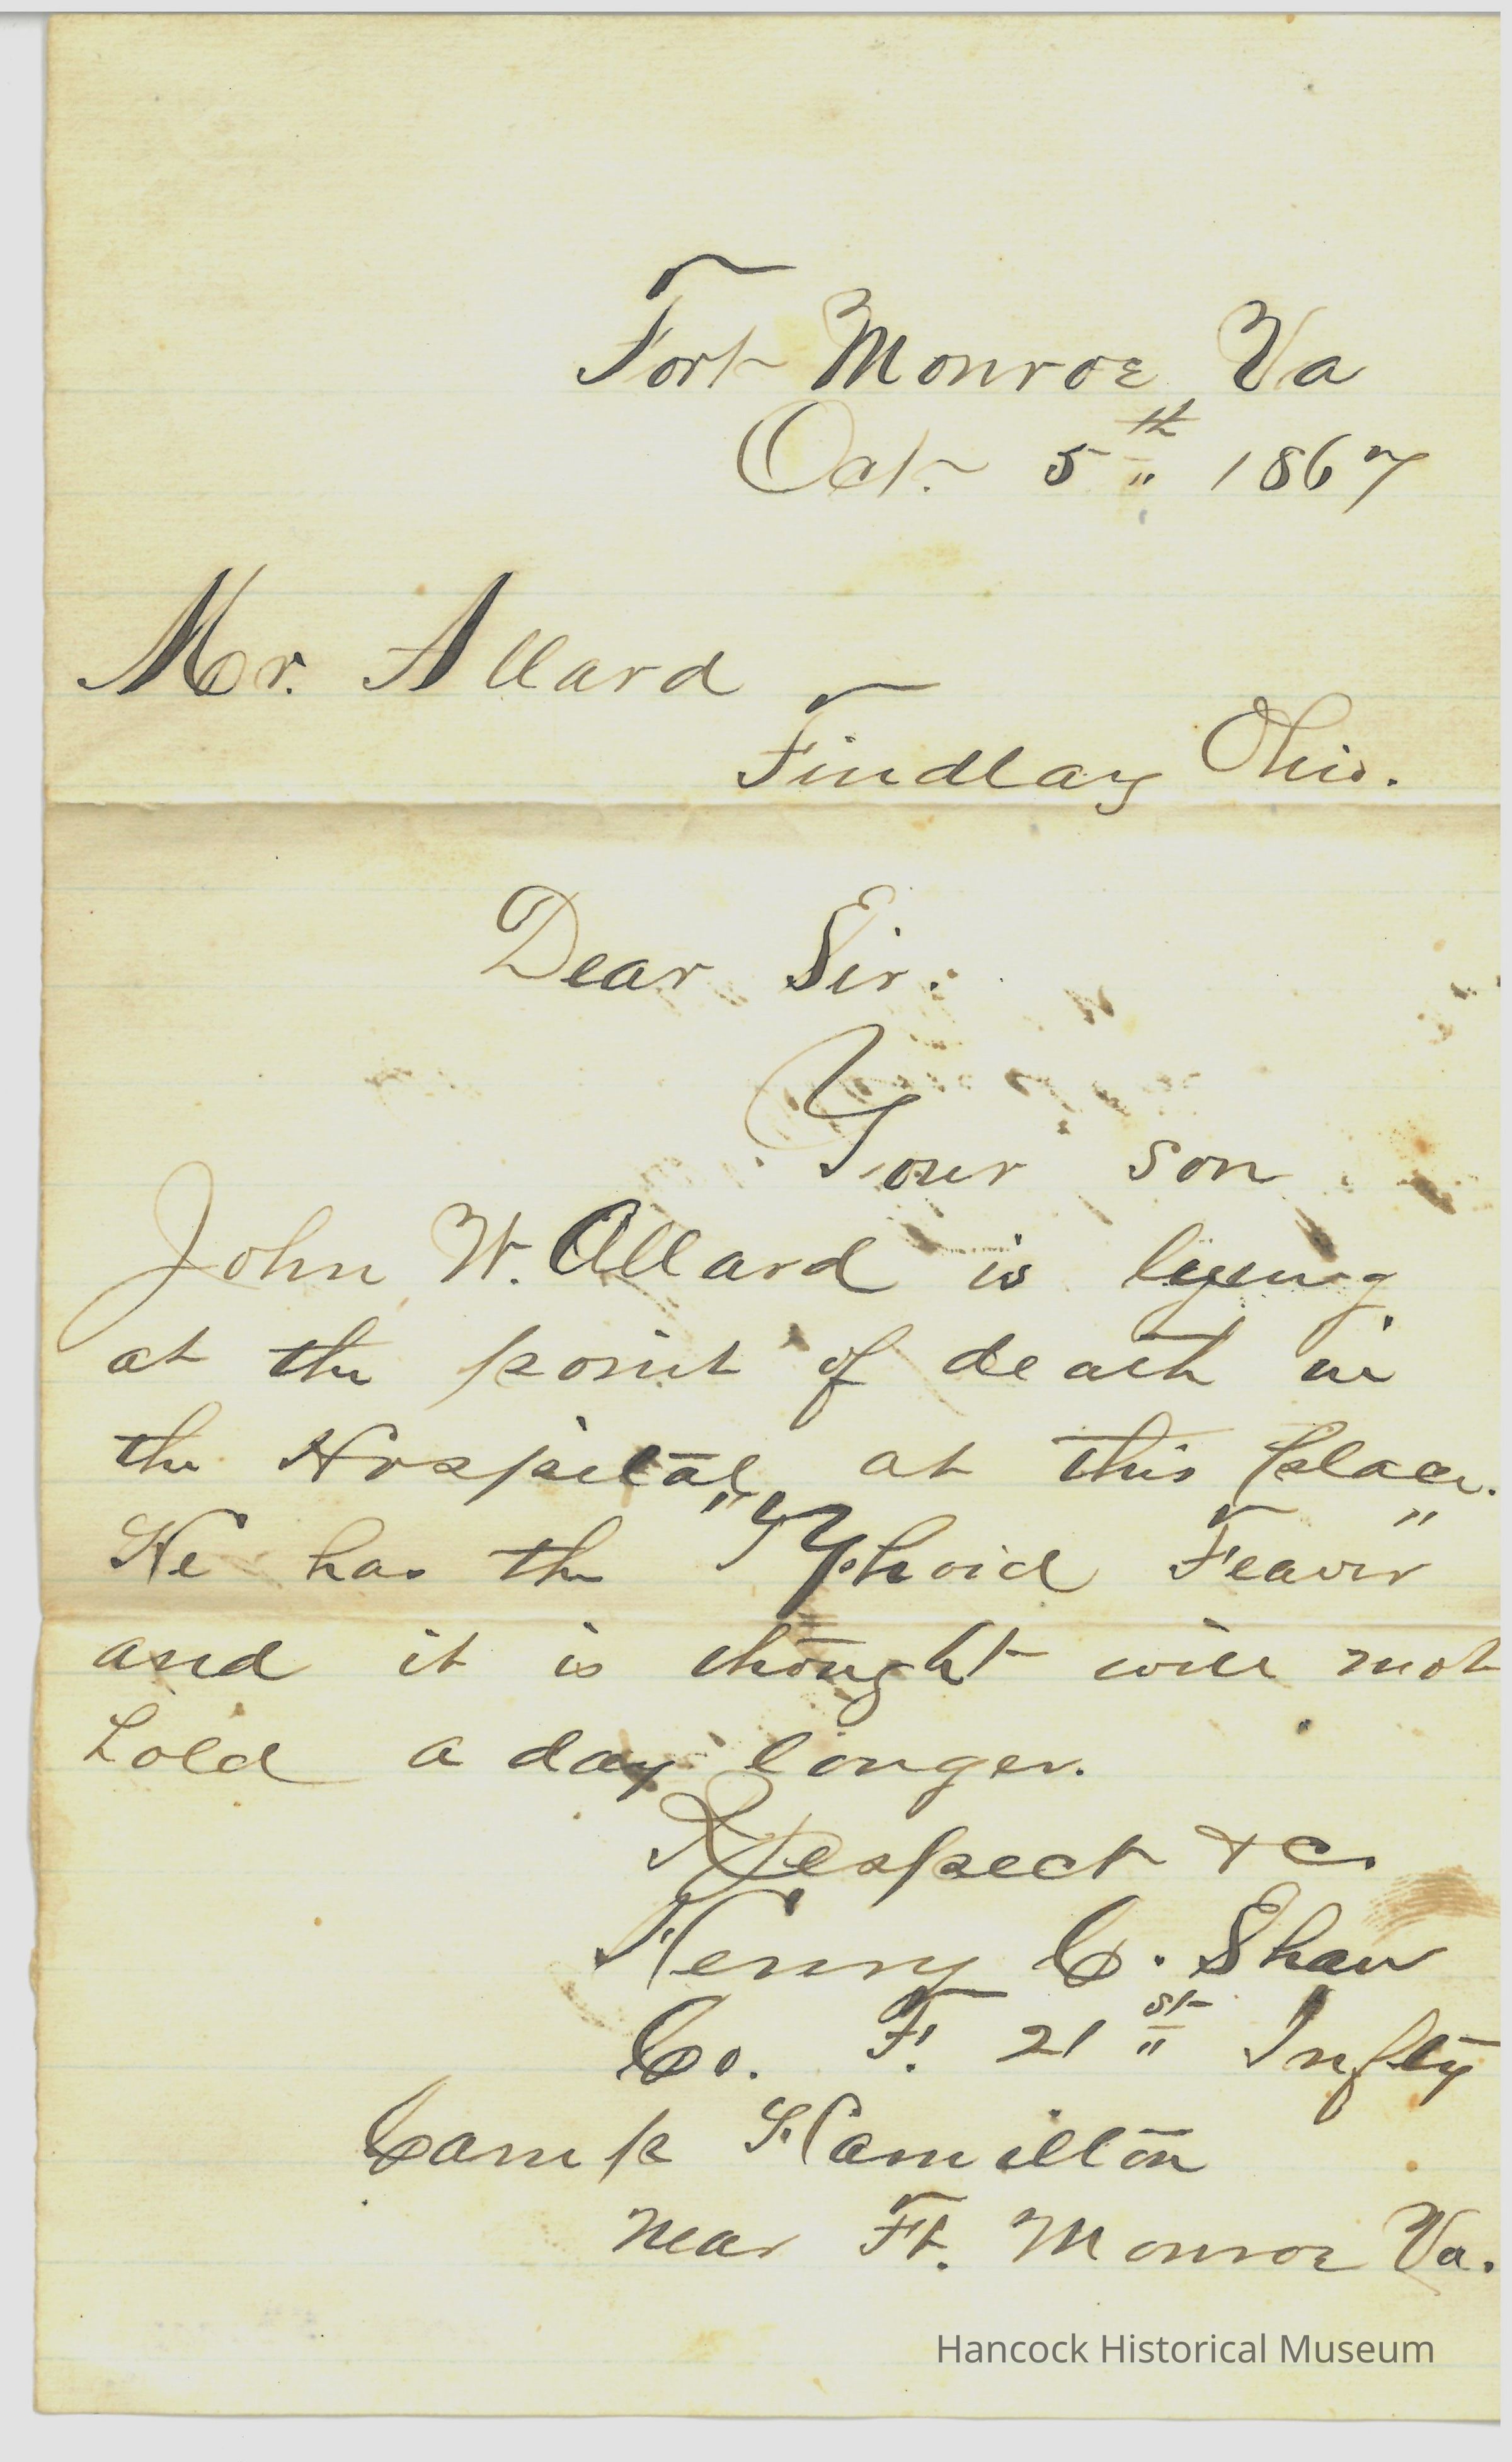 Fort Monroe Va
Oct. 5th 1867
Mr. Allard
Findlay Ohio.
Dear Sir.
Your son
John W. Allard is lyeing
at the point of death in
the Hospital, at this place.
He has the "Typhoid Feaver"
and it is thought will not
hold a day longer.
Respect &c.
Henry C. Shaw
Co. F. 21st Infty
Camp Hamilton
near Ft. Monroe Va.
Hancock Historical Museum